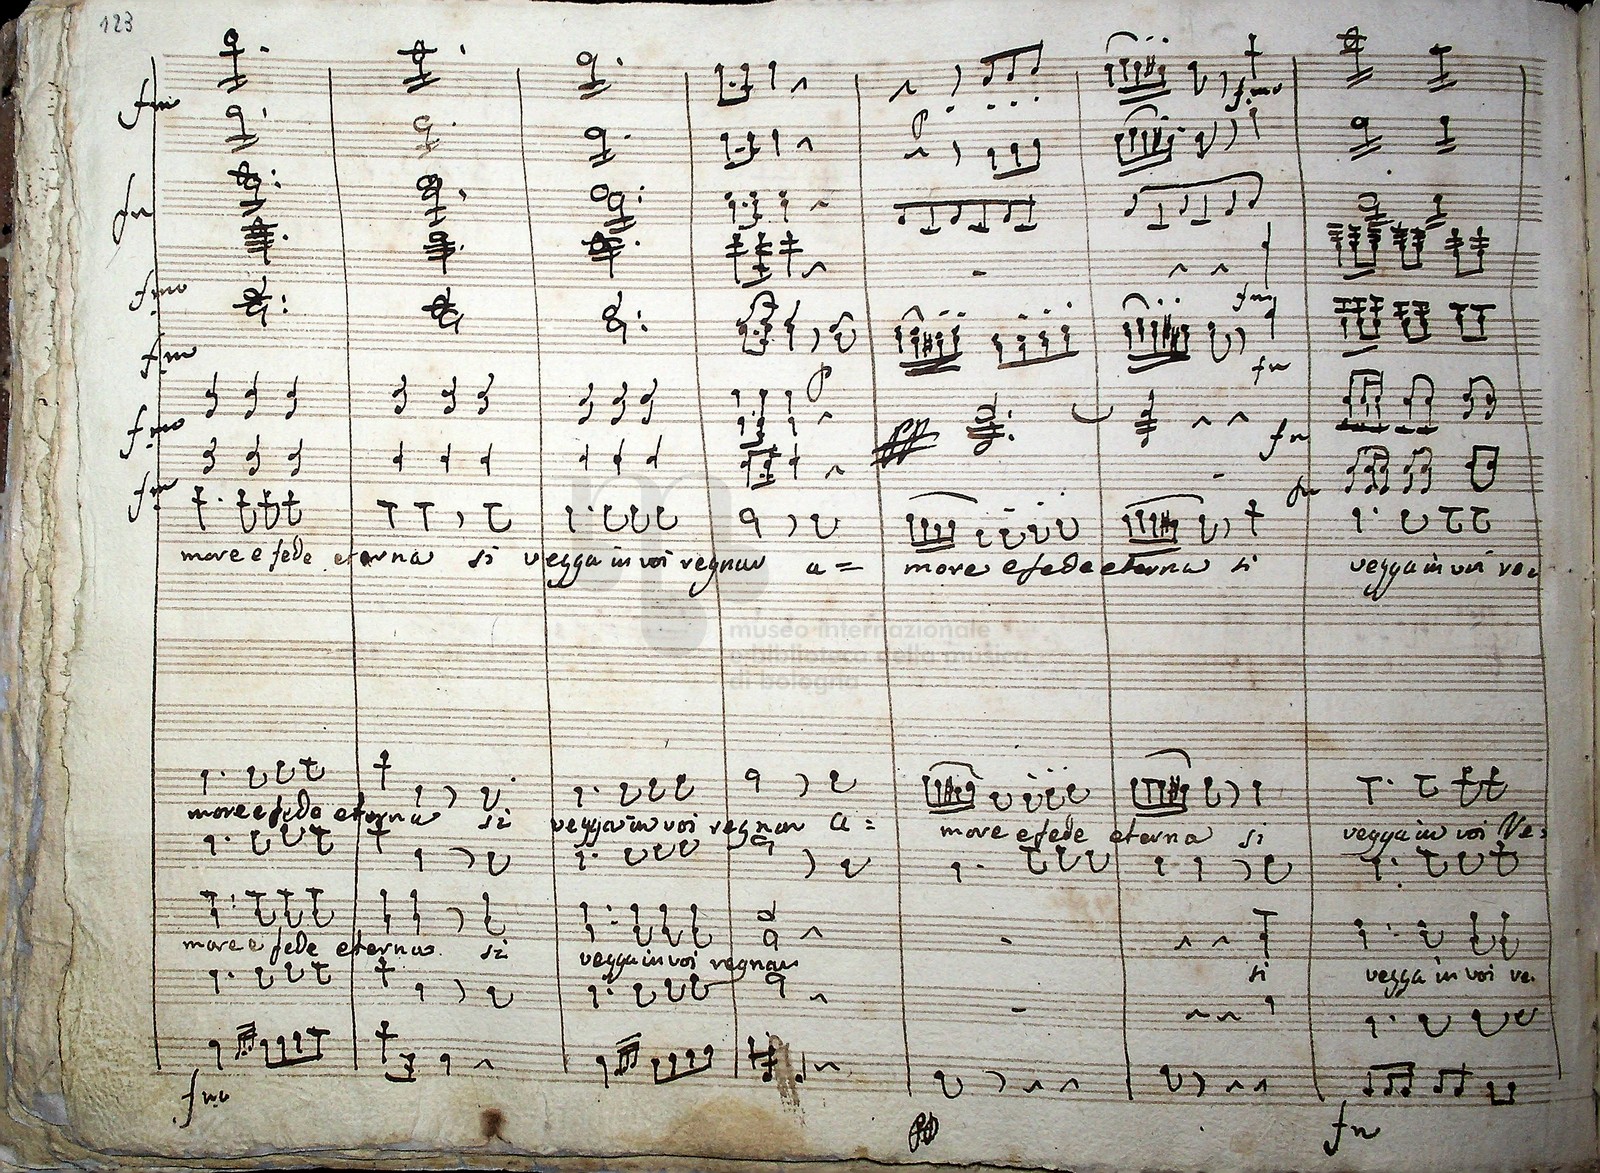 123
fmo
fm
fn
fmo
fmo
fm
fm
fmo
fn
fm
fn
more e fede eterna si vegga in voi regnar a= more e fede eterna si vegga in voi re
museo internazionale
e biblioteca della musica
di bologna
more e fede eterna si vegga in voi regnar a= more e fede eterna si vegga in voi Re=
more e fede eterna si vegga in voi regnar si vegga in voi re.
fmo
fn